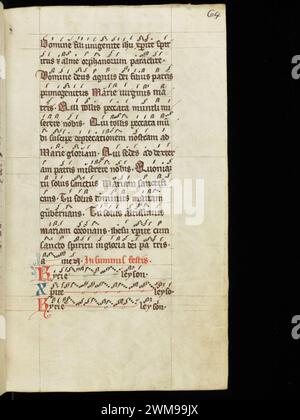 64
Domine fili unigenite ihu xpiste spir
itus et alme orphanorum paraclite.
Domine deus agnus dei filius patris
primogenitus Marie virginis ma
tris. Qui tollis peccata mundi mi
serere nobis. Qui tollis peccata mu
di suscipe deprecationem nostram ad
Marie gloriam. Qui sedes ad dexter
am patris miserere nobis. Quoniam
tu solus sanctus mariam sanctifi
cans. Tu solus dominus mariam
gubernans. Tu solus altissimus
mariam coronans. ihesu xpiste cum
sancto spiritu in gloria dei patris.
a men. In summis festis.
Kyrie leyson.
Xpiste leyson.
Kyrie leyson.
alamy
Image ID: 2WM99JX
www.alamy.com